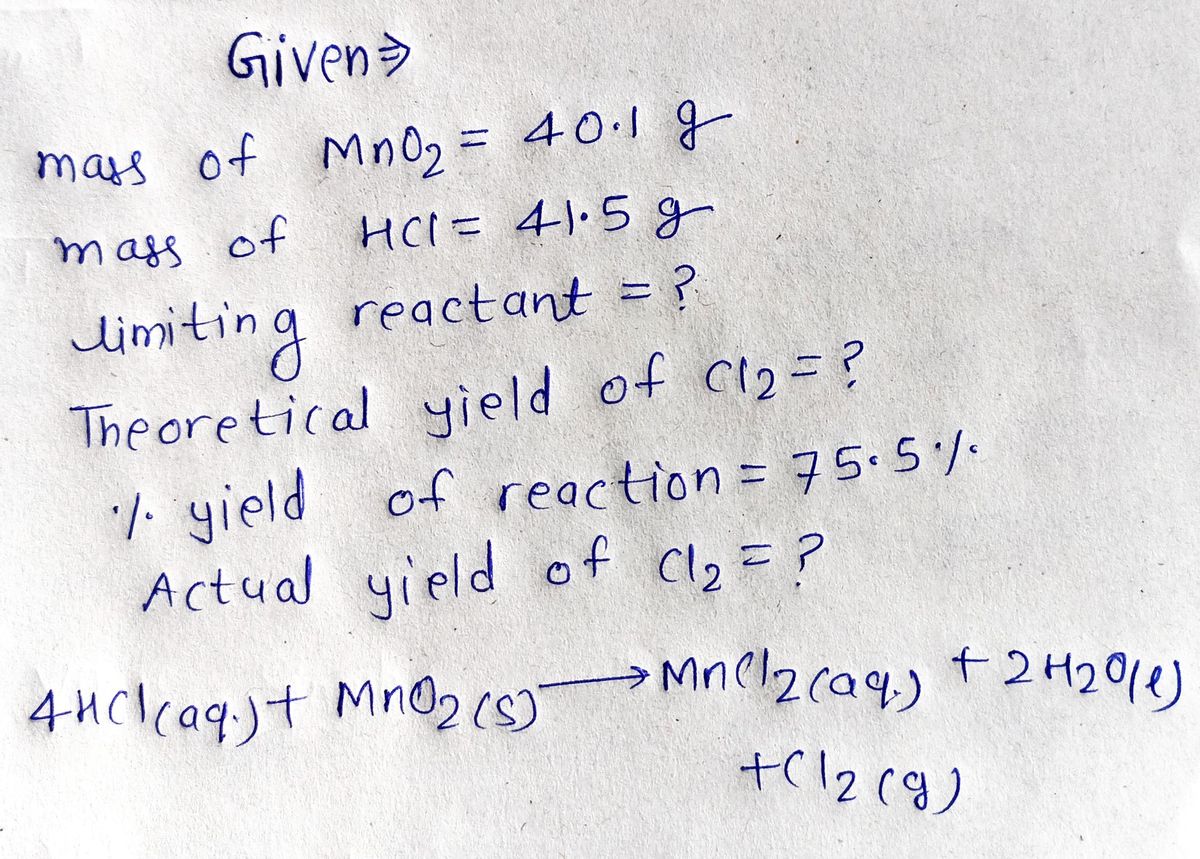 Given ⇒
mass of MnO₂ = 40.1 g
mass of HCl = 41.5 g
limiting reactant = ?
Theoretical yield of Cl₂ = ?
% yield of reaction = 75.5 %
Actual yield of Cl₂ = ?
4HCl(aq.) + MnO₂(s) → MnCl₂(aq.) + 2H₂O(l)
+Cl₂(g)